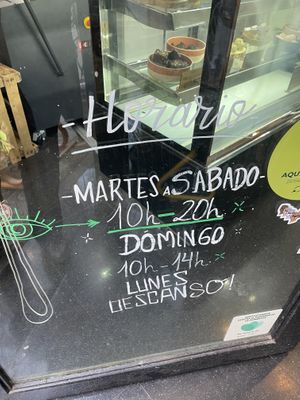 Horario
-MARTES A SABADO-
10h-20h
DOMINGO
10h-14h
LUNES
DESCANSO!
AQU